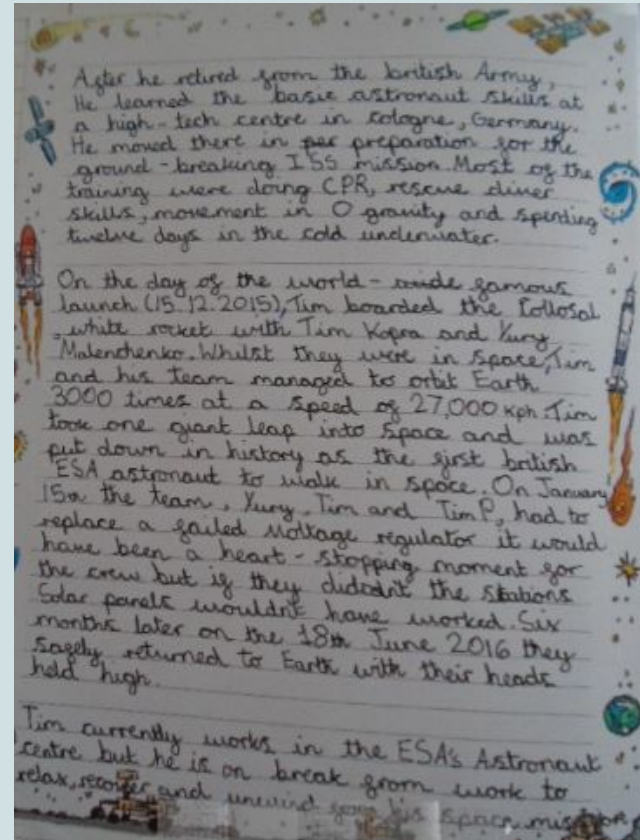 After he retired from the british Army,
He learned the basic astronaut skills at
a high-tech centre in cologne, Germany.
He moved there in per preparation for the
ground-breaking ISS mission. Most of the
training were doing CPR, rescue diver
skills, movement in 0 gravity and spending
twelve days in the cold underwater.
On the day of the world-wide famous
launch (15.12.2015), Tim boarded the Collosal
, white rocket with Tim Kopra and Yury
Malenchenko. Whilst they were in space, Tim
and his team managed to orbit Earth
3000 times at a speed of 27,000 kph. Tim
took one giant leap into space and was
put down in history as the first british
ESA astronaut to walk in space. On January
15th the team, Yury, Tim and Tim P, had to
replace a failed voltage regulator it would
have been a heart-stopping moment for
the crew but if they didodn't the stations
Solar panels wouldn't have worked. Six
months later on the 18th June 2016 they
safely returned to Earth with their heads
held high.
Tim currently works in the ESA's Astronaut
centre but he is on break from work to
relax, recover and unwind his space mission